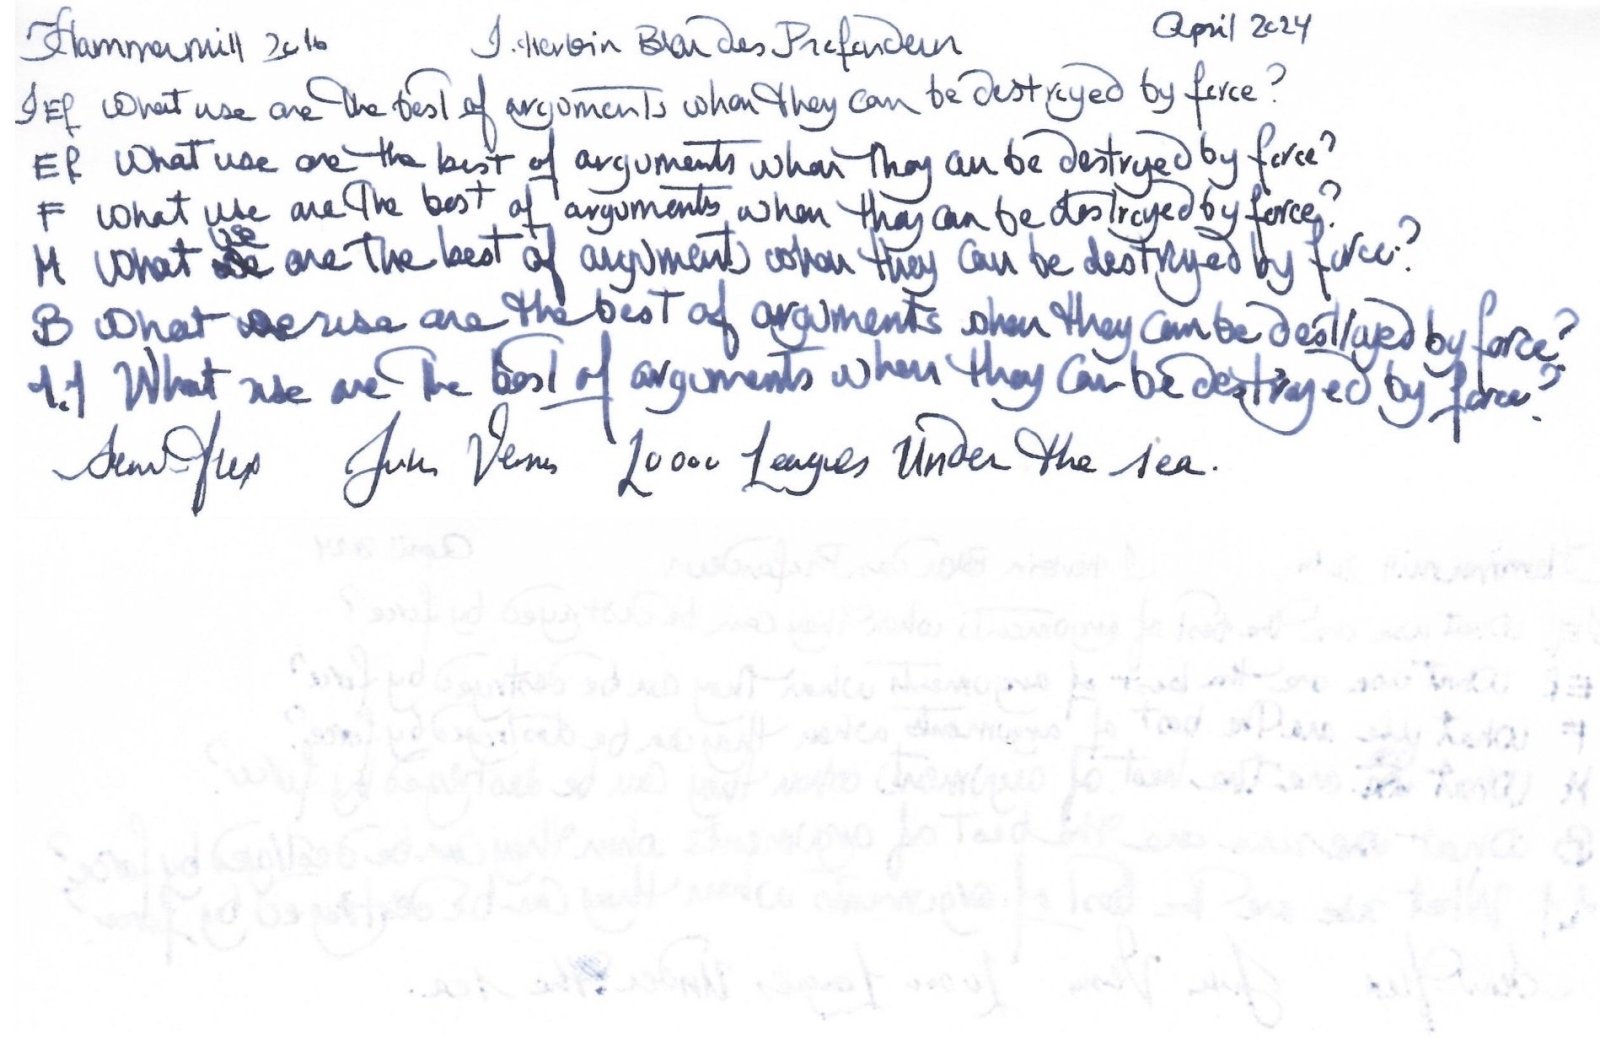 Hammermill 20lb J. Herbin Bleu des Profondeurs April 2024
JEF What use are the best of arguments when they can be destroyed by force?
EF What use are the best of arguments when they can be destroyed by force?
F What use are the best of arguments when they can be destroyed by force?
M What use are the best of arguments when they can be destroyed by force?
B What use are the best of arguments when they can be destroyed by force?
1.1 What use are the best of arguments when they can be destroyed by force?
Semi flex Jules Verne 20000 Leagues Under the Sea.